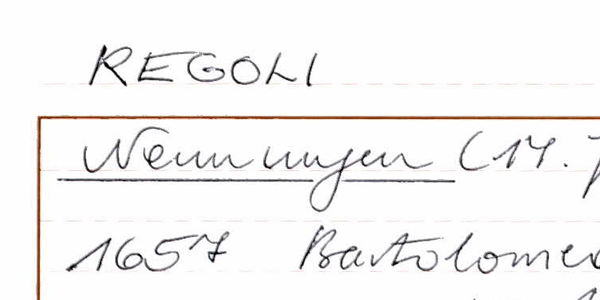 REGOLI
Nenningen (17. J
1657 Bartolomeo